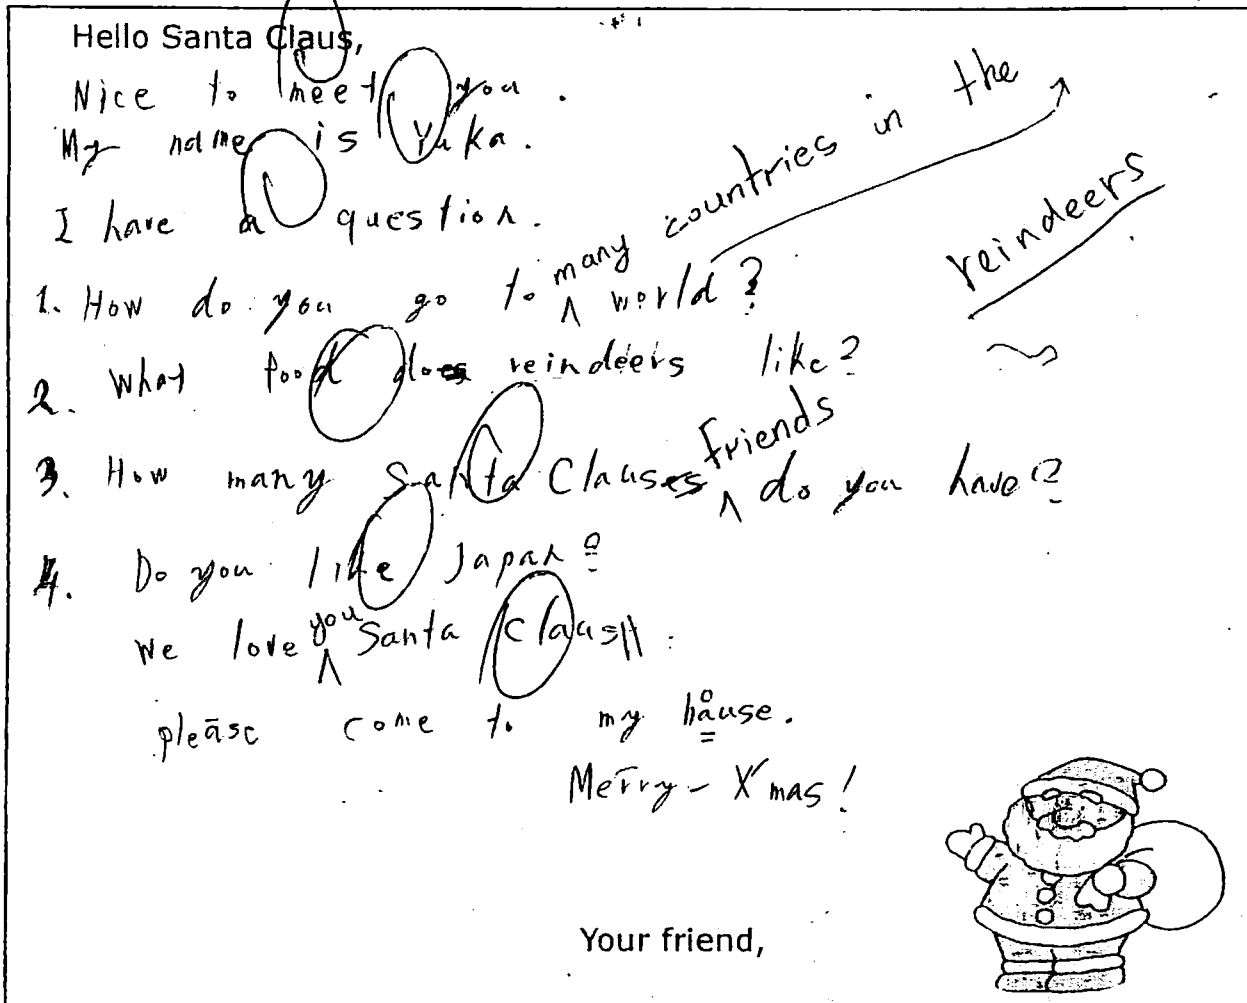 Hello Santa Claus,
Nice to meet you.
My name is Yuka.
I have a question.
countries in the
reindeers
1. How do you go to many world?
2. What food does reindeers like?
3. How many Santa Clauses friends do you have?
4. Do you like Japan?
We love you Santa Claus!!
please come to my hause.
o
Merry-X'mas!
Your friend,